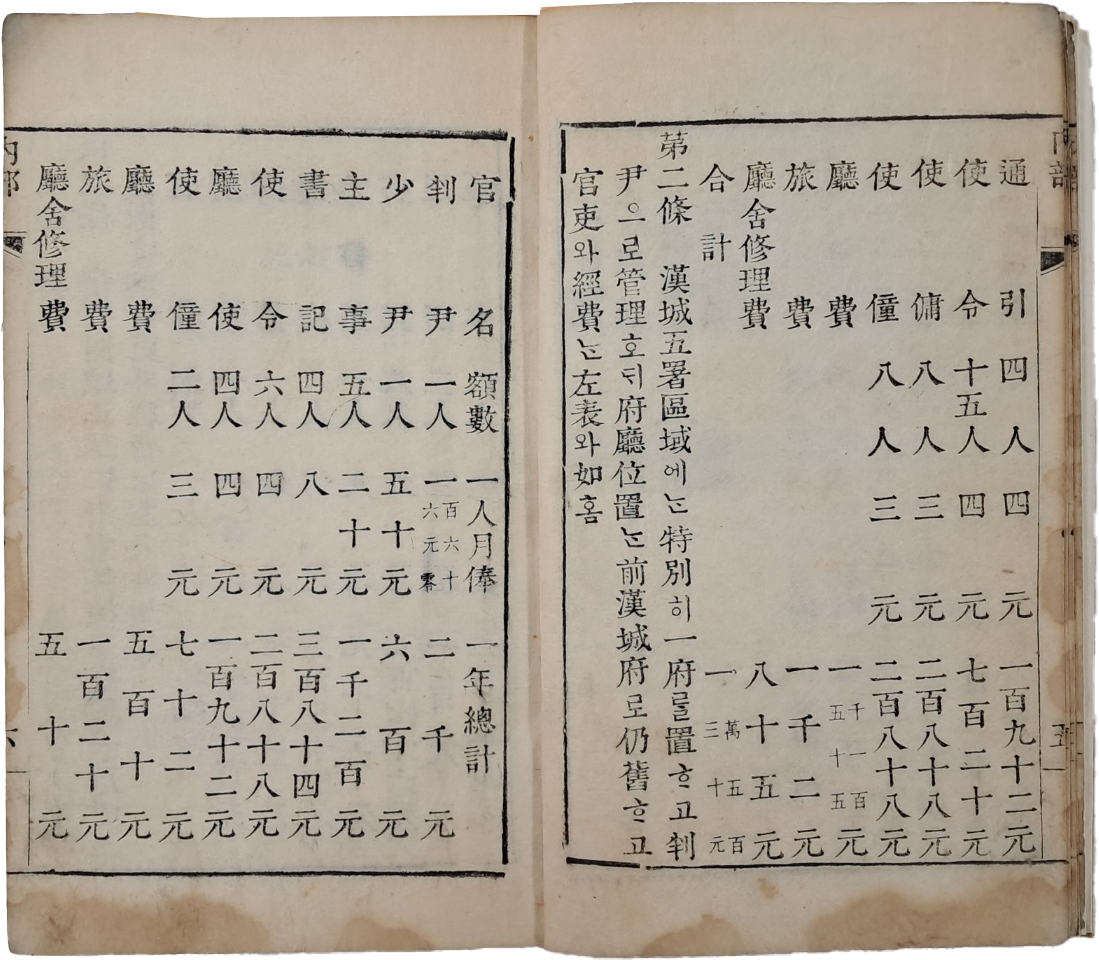 通引 四人 四元 一百九十二元
使令 十五人 四元 七百二十元
使傭 八人 三元 二百八十八元
使僮 八人 三元 二百八十八元
廳費 一千一百五十五元
旅費 一千二元
廳舍修理費 八十五元
合計 一萬五百三十元
第二條 漢城五署區域에ᄂᆞᆫ特別히一府를置ᄒᆞ고判
尹으로管理호ᄃᆡ府廳位置ᄂᆞᆫ前漢城府로仍舊ᄒᆞ고
官吏와經費ᄂᆞᆫ左表와如홈
官名 額數 一人月俸 一年總計
判尹 一人 一百六十六元零 二千元
少尹 一人 五十元 六百元
主事 五人 二十元 一千二百元
書記 四人 八元 三百八十四元
使令 六人 四元 二百八十八元
廳使 四人 四元 一百九十二元
使僮 二人 三元 七十二元
廳費 五百十元
旅費 一百二十元
廳舍修理費 五十元